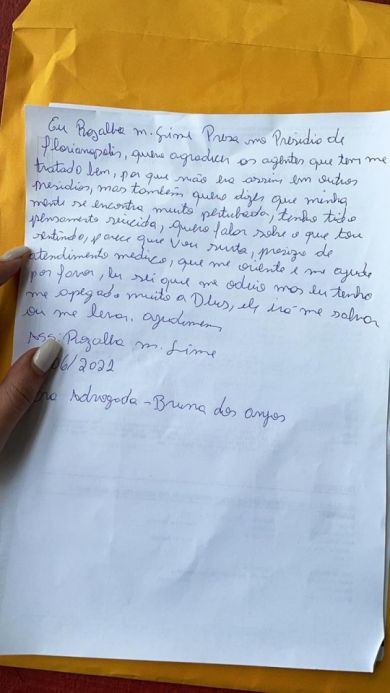 Eu Rozalba m. Grime Presa no Presidio de
florianopolis, quero agradicer os agentes que tem me
tratado bem, por que não era assim em outros
presidios, mas também quero dizer que minha
mente se encontra muito pertubada, tenho tido
pensamento suicida, quero falar sobre o que tou
sentindo, parece que vou surta, preciso de
atendimento médico, que me oriente e me ajude
por favor, Eu sei que me odeio mas eu tenho
me apegado muito a Deus, ele irá me salvar
ou me levar.
Ass: Rozalba m. Grime
06/2021
Advogada - Bruna dos anjos